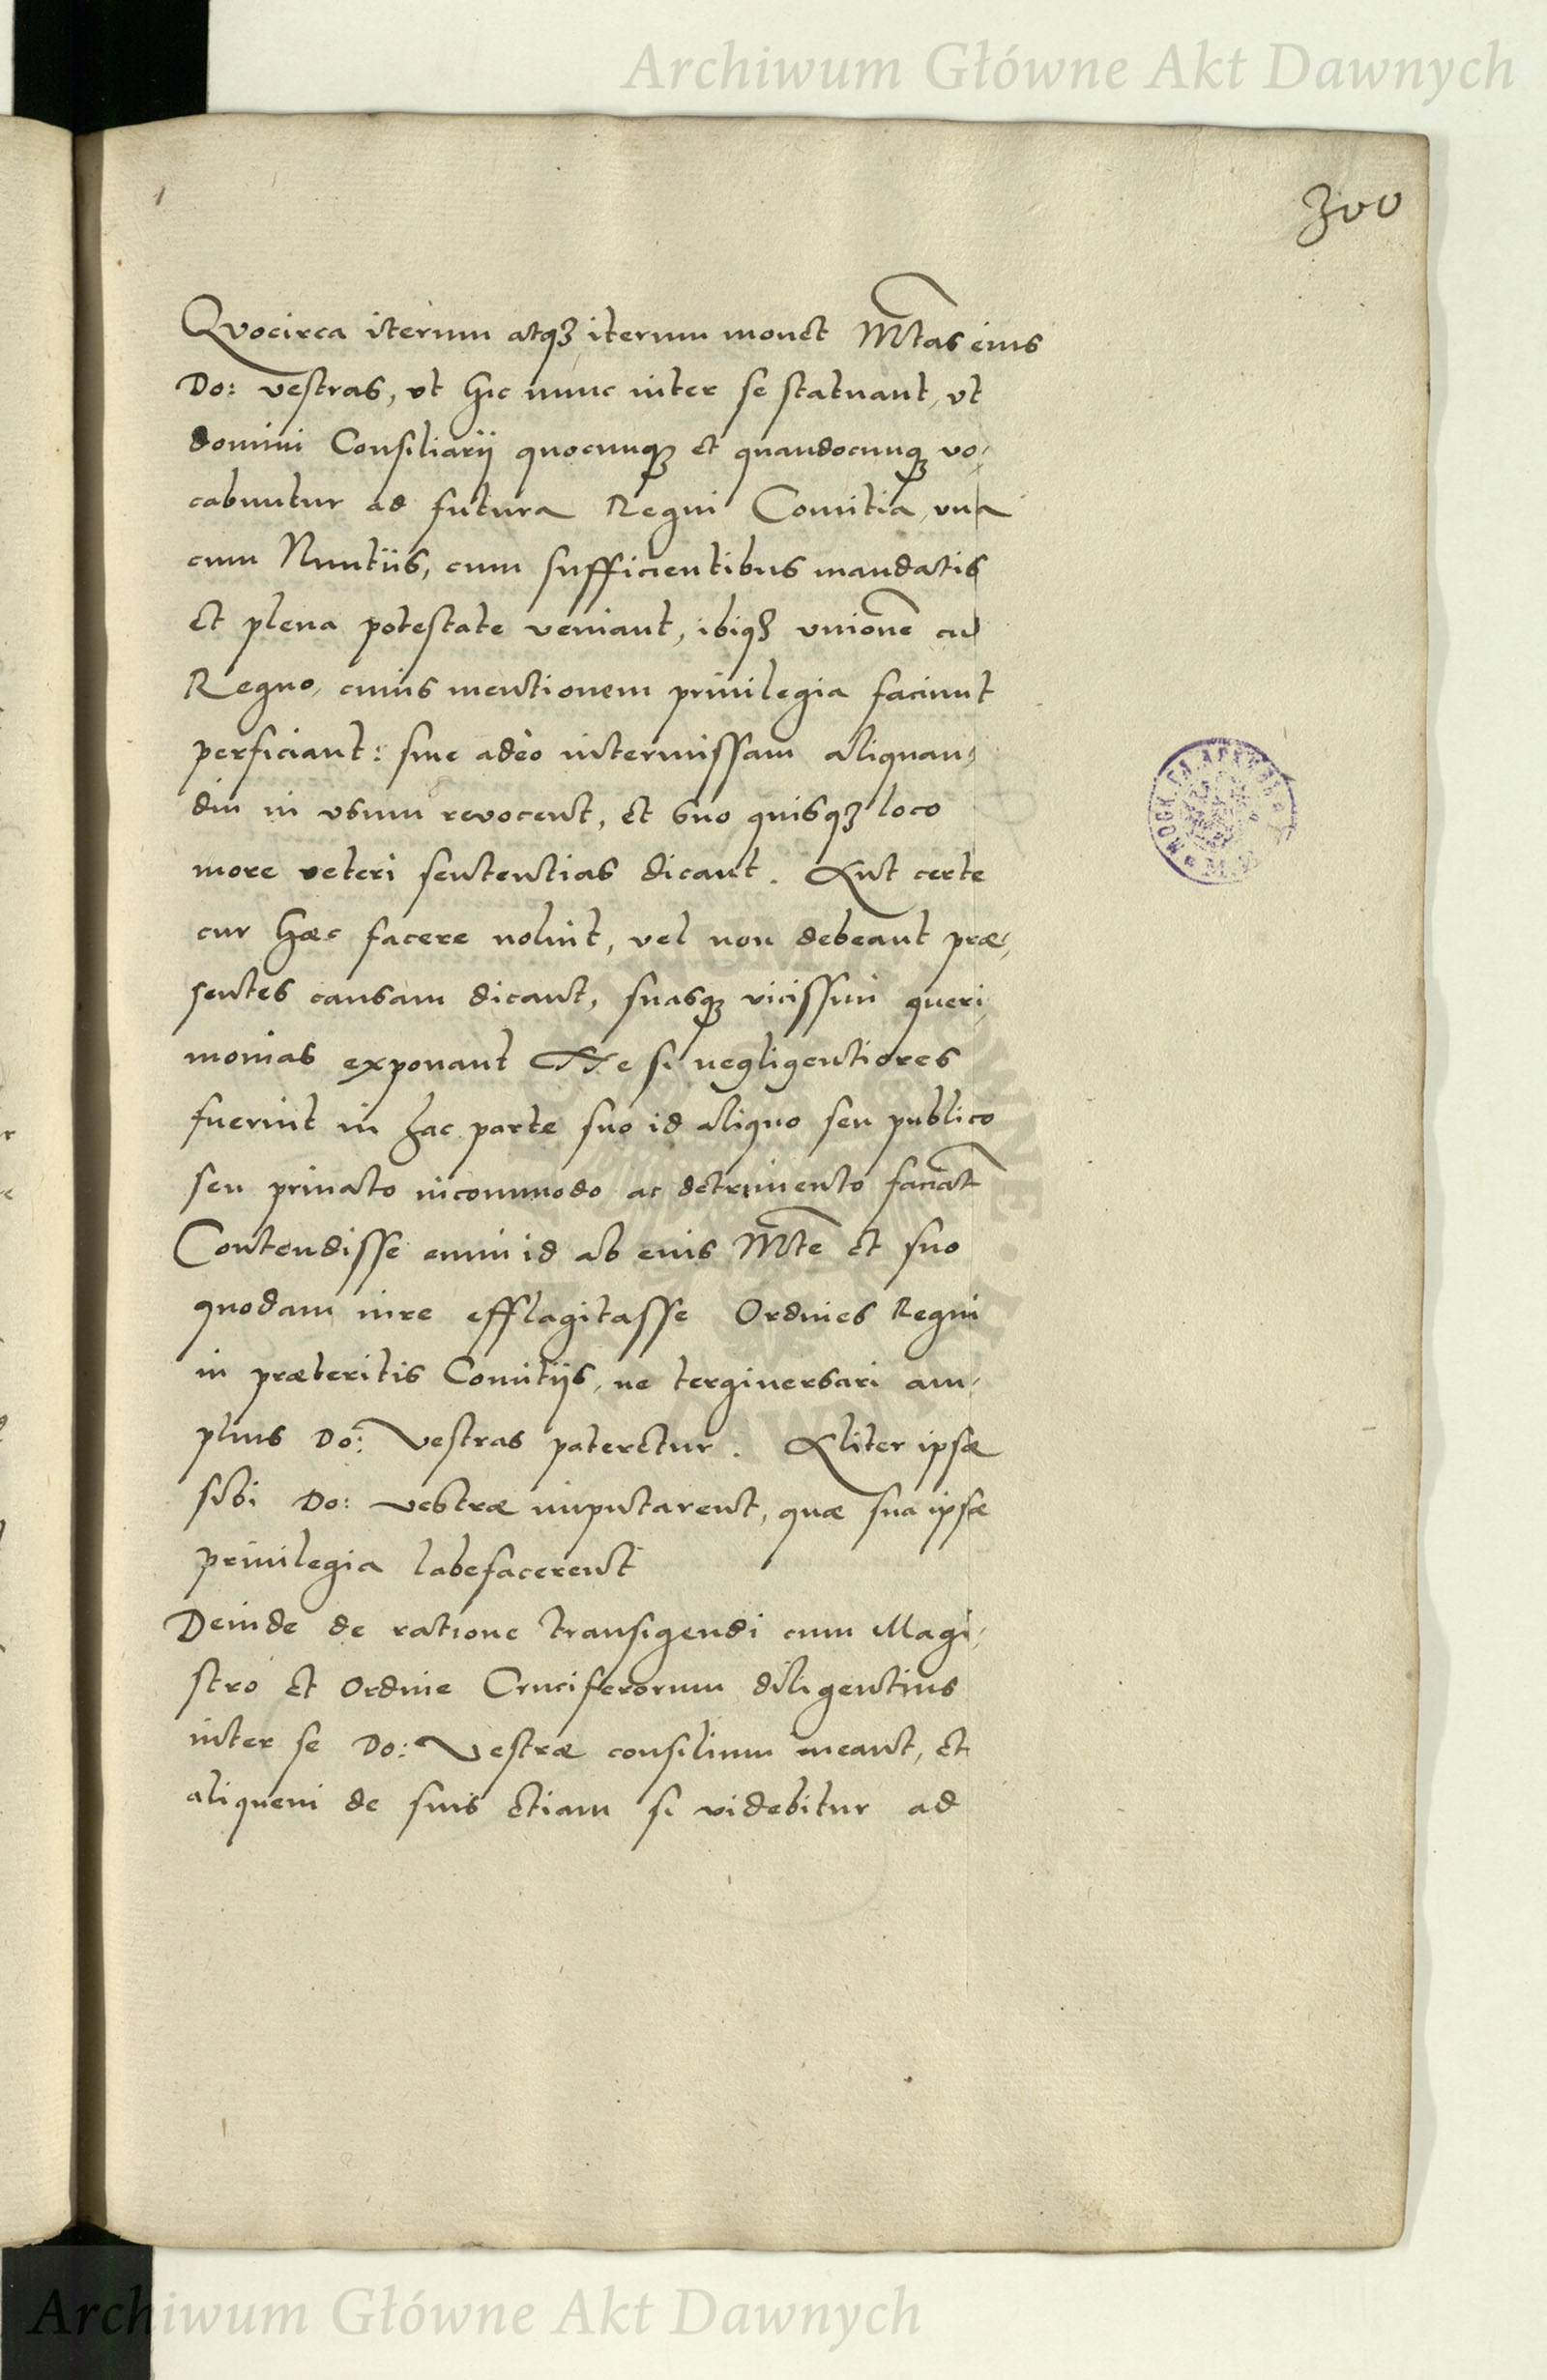 Archiwum Główne Akt Dawnych
300
Quocirca iterum atqȝ iterum monet Mtas eius
Do: vestras, vt hic nunc inter se statuant, vt
domini Consiliarij quocunqȝ et quandocunqȝ vo-
cabuntur ad futura Regni Comitia, vna
cum Nuntiis, cum sufficientibus mandatis
et plena potestate veniant, ibiqȝ vnionē cū
Regno, cuius mentionem priuilegia faciunt
perficiant: siue adeò intermissam aliquan-
diu in vsum revocent, et suo quisqȝ loco
more veteri sententias dicant. Aut certe
cur haec facere nolint, vel non debeant præ-
sentes causam dicant, suasqȝ vicissim queri-
monias exponant Ne si negligentiores
fuerint in hac parte suo id aliquo seu publico
seu priuato incommodo ac detrimento faciāt
Contendisse enim id ab eius Mte et suo
quodam iure efflagitasse Ordines Regni
in præteritis Comitijs, ne tergiuersari am-
plius Do: Vestras pateretur. Aliter ipsæ
sibi Do: vestræ imputarent, quæ sua ipsæ
priuilegia labefacerent
Deinde de ratione transigendi cum Magi-
stro et Ordine Cruciferorum diligentius
inter se Do: Vestræ consilium ineant, et
aliquem de suis etiam si videbitur ad
Archiwum Główne Akt Dawnych